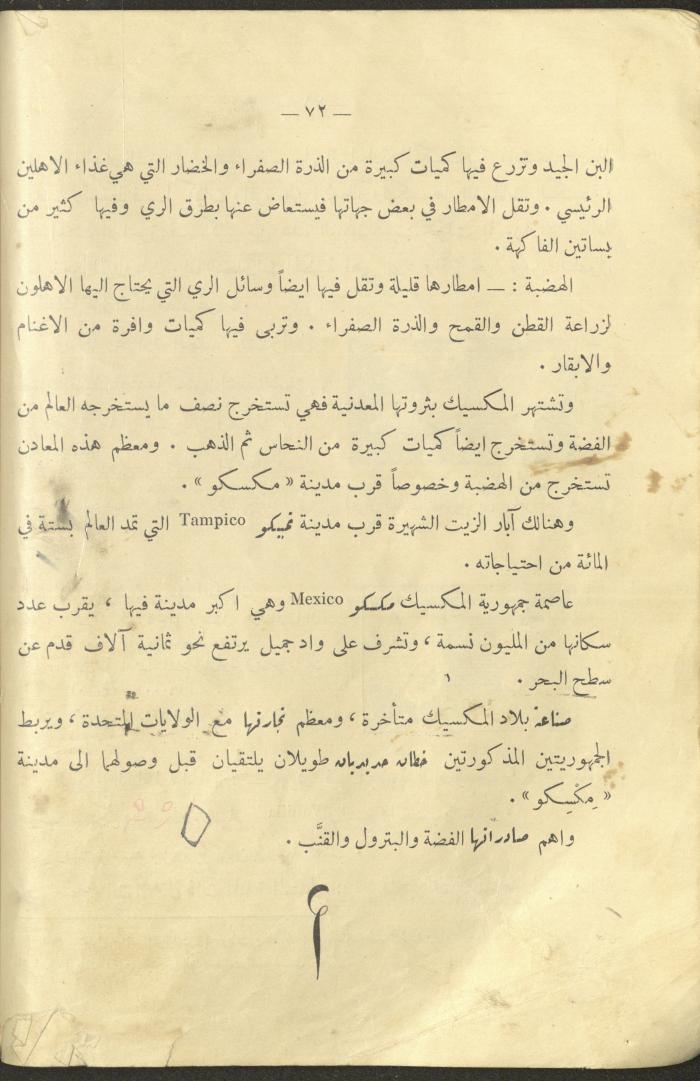 — ٧٢ —
البن الجيد وتزرع فيها كميات كبيرة من الذرة الصفراء والخضار التي هي غذاء الاهلين
الرئيسي . وتقل الامطار في بعض جهاتها فيستعاض عنها بطرق الري وفيها كثير من
بساتين الفاكهة .
الهضبة : — امطارها قليلة وتقل فيها ايضاً وسائل الري التي يحتاج اليها الاهلون
لزراعة القطن والقمح والذرة الصفراء . وتربى فيها كميات وافرة من الاغنام
والابقار .
وتشتهر المكسيك بثروتها المعدنية فهي تستخرج نصف ما يستخرجه العالم من
الفضة وتستخرج ايضاً كميات كبيرة من النحاس ثم الذهب . ومعظم هذه المعادن
تستخرج من الهضبة وخصوصاً قرب مدينة « مكسكو » .
وهنالك آبار الزيت الشهيرة قرب مدينة تمبيكو Tampico التي تمد العالم بستة في
المائة من احتياجاته .
عاصمة جمهورية المكسيك مكسكو Mexico وهي اكبر مدينة فيها ، يقرب عدد
سكانها من المليون نسمة ، وتشرف على واد جميل يرتفع نحو ثمانية آلاف قدم عن
سطح البحر .
صناعة بلاد المكسيك متأخرة ، ومعظم تجارتها مع الولايات المتحدة ، ويربط
الجمهوريتين المذكورتين خطان حديديان طويلان يلتقيان قبل وصولهما الى مدينة
« مِكْسِكو » .
واهم صادراتها الفضة والبترول والقنَّب .